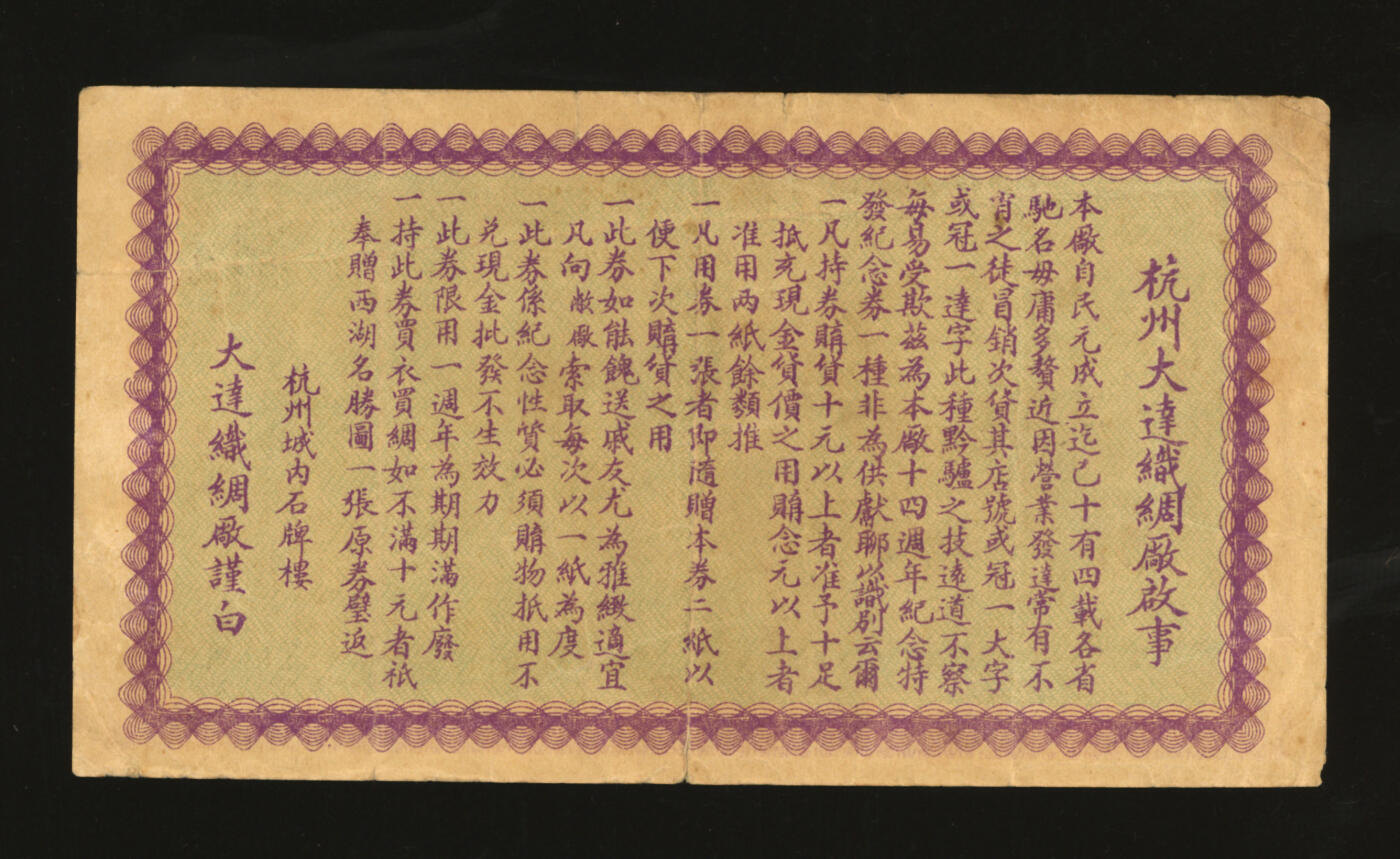 杭州大達織綢廠啟事
本廠自民元成立迄已十有四載各省
馳名毋庸多贅近因營業發達常有不
宵之徒冒銷次貨其店號或冠一大字
或冠一達字此種黔驢之技遠道不察
每易受欺茲為本廠十四週年紀念特
發紀念券一種非為供獻聊以識別云爾
一凡持券購貨十元以上者准予十足
抵充現金貨價之用購念元以上者
准用兩紙餘類推
一凡用券一張者即隨贈本券二紙以
便下次購貨之用
一此券如能餽送戚友尤為雅緻適宜
凡向敝廠索取每次以一紙為度
一此券係紀念性質必須購物抵用不
兌現金批發不生效力
一此券限用一週年為期期滿作廢
一持此券買衣買綢如不滿十元者祇
奉贈西湖名勝圖一張原券璧返
杭州城內石牌樓
大達織綢廠謹白